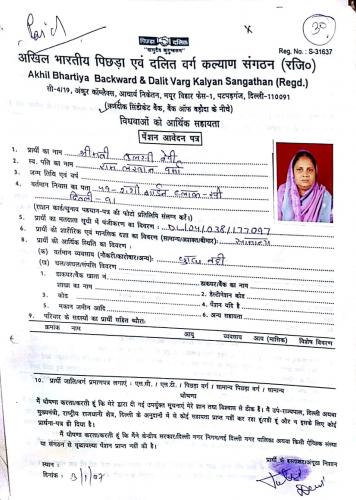 Paid
30
पिछड़ा दलित
Reg. No. : S-31637
अखिल भारतीय पिछड़ा एवं दलित वर्ग कल्याण संगठन (रजि०)
Akhil Bhartiya Backward & Dalit Varg Kalyan Sangathan (Regd.)
सी-4/19, अंकुर कॉम्प्लेक्स, आचार्य निकेतन, मयूर विहार फेस-1, पटपड़गंज, दिल्ली-110091
(नजदीक सिंडीकेट बैंक, बैंक ऑफ बड़ौदा के नीचे)
विधवाओं को आर्थिक सहायता
पेंशन आवेदन पत्र
1. प्रार्थी का नाम श्रीमती तुलसी देवी
2. स्व. पति का नाम राम लखन वर्मा
3. जन्म तिथि एवं वर्ष
4. वर्तमान निवास का पता 49-शशी गार्डन
दिल्ली-91
(राशन कार्ड/चुनाव पहचान-पत्र की फोटो प्रतिलिपि संलग्न करें।)
5. प्रार्थी का मतदाता सूची में पंजीकरण का विवरण : DL/04/038/177097
6. प्रार्थी की शारीरिक एवं मानसिक दशा का विवरण (सामान्य/अशक्त/बीमार): सामान्य
8. प्रार्थी की आर्थिक स्थिति का विवरण :
(क) वर्तमान व्यवसाय (नौकरी/कारोबार/अन्य): कुछ नहीं
(ख) चल/अचल/संपत्ति विवरण
1. डाकघर/बैंक खाता नं. डाकघर/बैंक का नाम
शाखा का नाम 2. डेस्टीनेशन कोड
3. कोड 4. पेंशन यदि है
5. मकान जमीन आदि 6. अन्य सहायता
9. परिवार के सदस्यों का प्रार्थी सहित ब्यौरा:
क्रमांक नाम आयु व्यवसाय आय (मासिक) विशेष विवरण
10. प्रार्थी जाति/वर्ग प्रमाणपत्र लगाएं : एस.सी. / एस.टी. / पिछड़ा वर्ग / सामान्य पिछड़ा वर्ग / सामान्य
घोषणा
मैं घोषणा करता/करती हूं कि मेरे द्वारा दी गई उपर्युक्त सूचनाएं मेरे ज्ञान तथा विश्वास से ठीक है। मैं उप-राज्यपाल, दिल्ली अथवा
मुख्यमंत्री, राष्ट्रीय राजधानी क्षेत्र, दिल्ली के अनुदानों में से कोई सहायता प्राप्त नहीं कर रहा हूं/रही हूं और न इसके लिए कोई
प्रार्थना-पत्र ही दिया है।
मैं घोषणा करता/करती हूं कि मैंने केन्द्रीय सरकार/दिल्ली नगर निगम/नई दिल्ली नगर पालिका अथवा किसी ऐच्छिक संस्था
या संगठन से वृद्धावस्था पेंशन प्राप्त नहीं की है।
स्थान :
दिनांक : 3/1/07
प्रार्थी के हस्ताक्षर/अंगूठा निशान